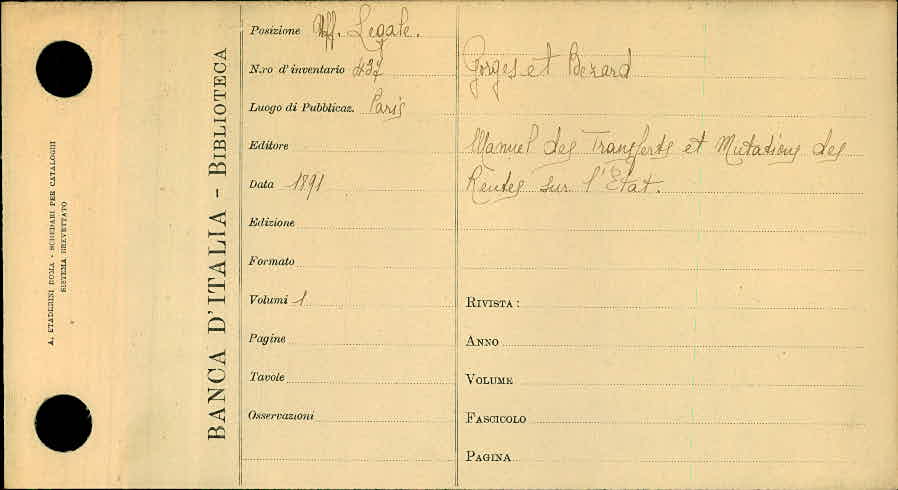 A. STADERINI ROMA - SCHEDARI PER CATALOGHI
SISTEMA BREVETTATO
BANCA D'ITALIA - BIBLIOTECA
Posizione Uff. Legale.
N.ro d'inventario 437
Luogo di Pubblicaz. Paris
Editore
Data 1891
Edizione
Formato
Volumi 1
Pagine
Tavole
Osservazioni
Gorges et Bezard
Manuel des Transferts et Mutations des
Rentes sur l'Etat.
RIVISTA :
ANNO
VOLUME
FASCICOLO
PAGINA